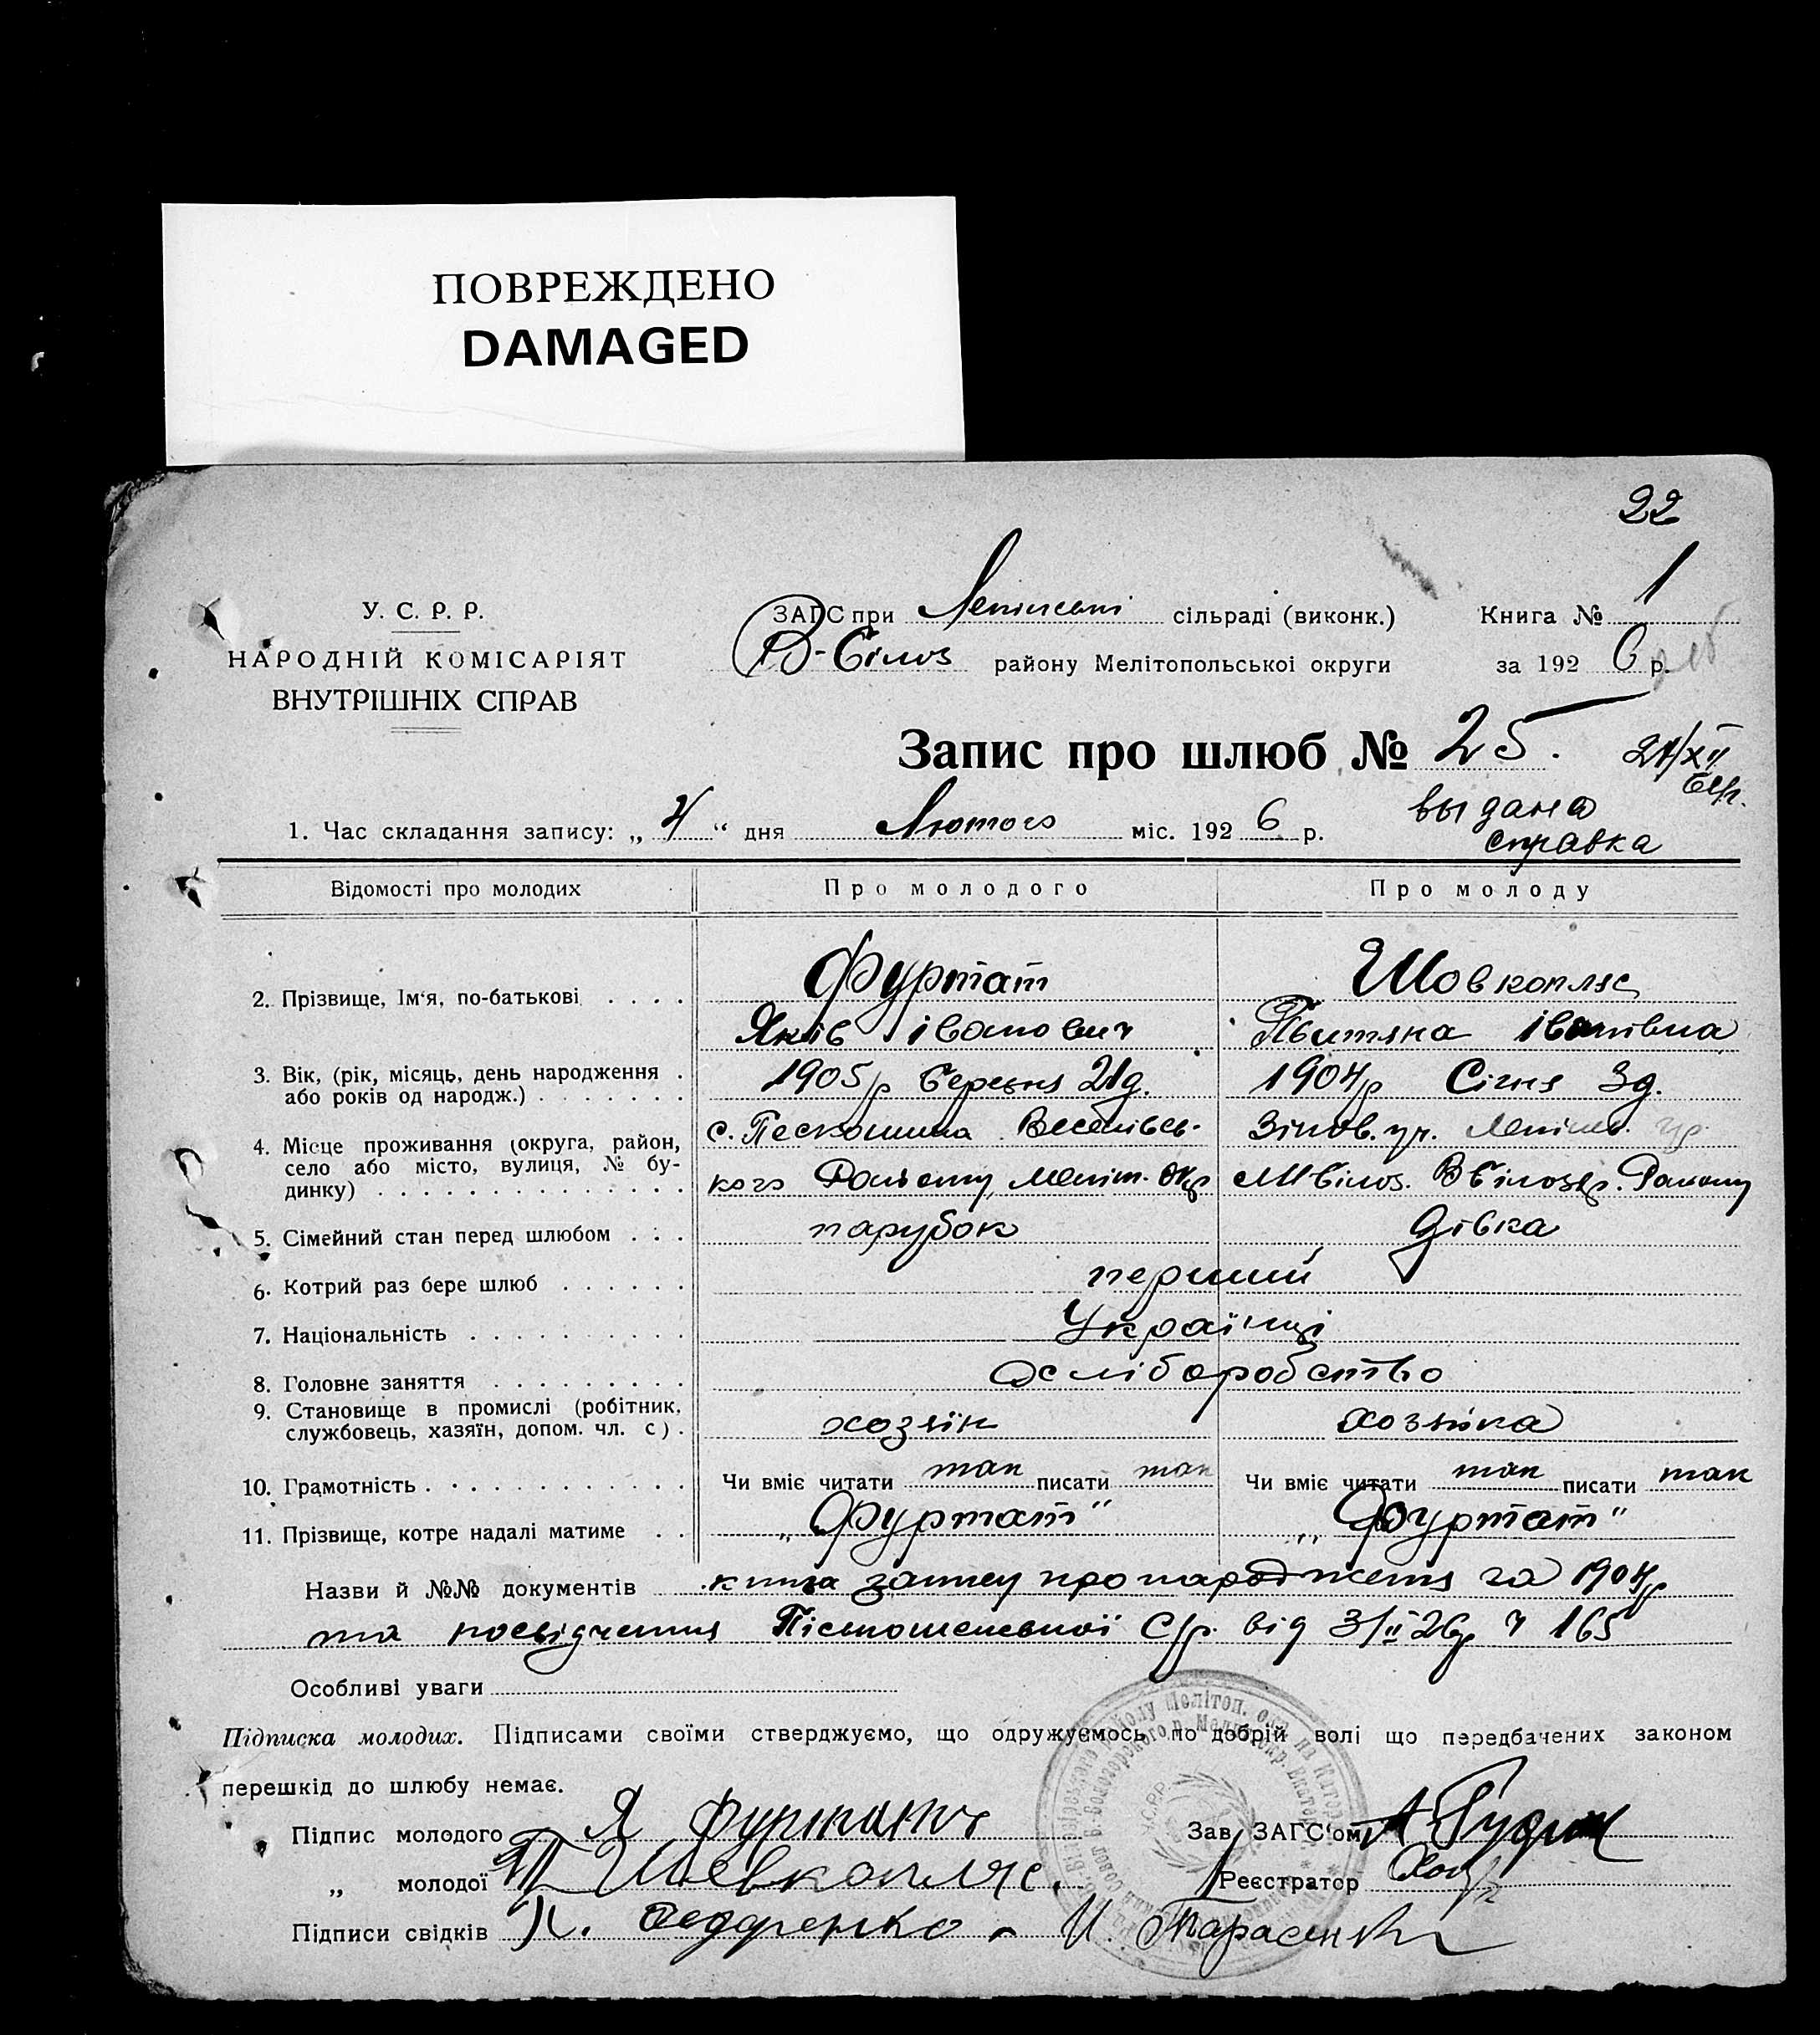 ПОВРЕЖДЕНО
DAMAGED
22
У. С. Р. Р.
НАРОДНІЙ КОМІСАРІЯТ
ВНУТРІШНІХ СПРАВ
ЗАГС при сільраді (виконк.) Книга № 1
В-Білоз району Мелітопольської округи за 192 6 р.
Запис про шлюб № 25.
выдана
справка
1. Час складання запису: „ 4 “ дня Лютого міс. 192 6 р.
Відомості про молодих Про молодого Про молоду
2. Прізвище, Ім'я, по-батькові Фуртат Шовкопляс
Яків Іванович Іванівна
3. Вік, (рік, місяць, день народження 1905 р Березня 21 д. 1904 р Січня 3 д.
або років од народж.)
4. Місце проживання (округа, район, с. Веселівсь-
село або місто, вулиця, № бу- кого Району, Меліт. Окр Району
динку)
5. Сімейний стан перед шлюбом парубок дівка
6. Котрий раз бере шлюб перший
7. Національність Українці
8. Головне заняття хліборобство
9. Становище в промислі (робітник, хозяін хозяйка
службовець, хазяїн, допом. чл. с)
10. Грамотність Чи вміє читати так писати так Чи вміє читати так писати так
11. Прізвище, котре надалі матиме „Фуртат“ „Фуртат“
Назви й №№ документів книга запису про народження за 1904 р
та посвідчення С/р. від 3/II 26 р Ч 165
Особливі уваги
Підписка молодих. Підписами своїми стверджуємо, що одружуємось по добрій волі що передбачених законом
перешкід до шлюбу немає.
Підпис молодого Я Фуртат Зав. ЗАГС'ом
„ молодої Шовкопляс. Реєстратор
Підписи свідків Федоренко И. Тарасенко